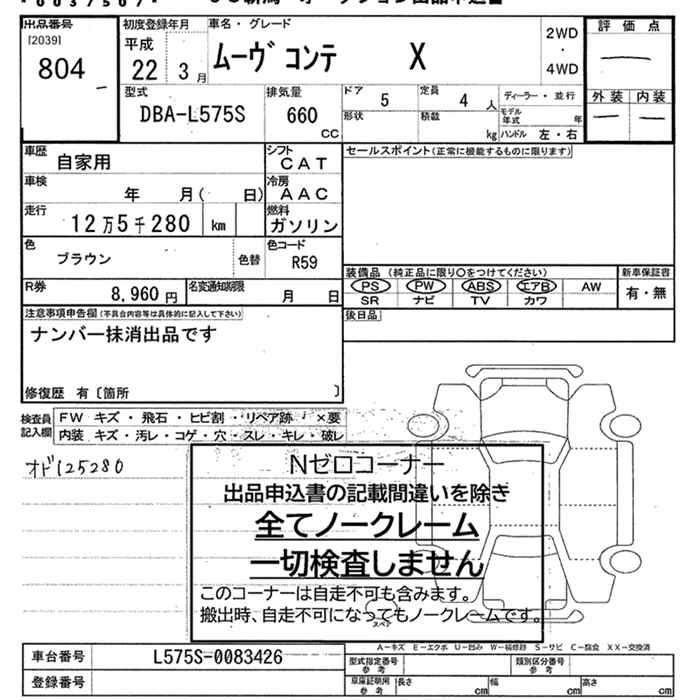 出品番号
[2039]
804
初度登録年月
平成
22 3 月
車名・グレード
ムーヴ コンテ X
2WD
・
4WD
評価点
外装 内装
型式
DBA-L575S
排気量
660
CC
ドア
5
定員
4 人
形状
積載
kg
ディーラー・並行
モデル年式 年
ハンドル 左・右
車歴
自家用
シフト
CAT
車検
年 月( 日)
冷房
AAC
走行
12 万 5 千 280 km
燃料
ガソリン
色
ブラウン
色替
色コード
R59
R券
8,960 円
名変通知期限
月 日
セールスポイント(正常に機能するものに限ります)
装備品 (純正品に限り○をつけてください)
新車保証書
PS PW ABS エアB AW
有・無
SR ナビ TV カワ
後日品
注意事項申告欄(不具合内容等は具体的に記入して下さい)
ナンバー抹消出品です
修復歴 有〔箇所 〕
検査員記入欄
FW キズ・飛石・ヒビ割・リペア跡・×要
内装 キズ・汚レ・コゲ・穴・スレ・キレ・破レ
オド125280
Nゼロコーナー
出品申込書の記載間違いを除き
全てノークレーム
一切検査しません
このコーナーは自走不可も含みます。
搬出時、自走不可になってもノークレームです。
スペア
A-キズ E-エクボ U-凹み W-補修跡 S-サビ C-腐食 XX-交換済
車台番号
L575S-0083426
登録番号
型式指定番号
参考
類別区分番号
参考
車庫証明用
参考
長さ cm
幅 cm
高さ cm